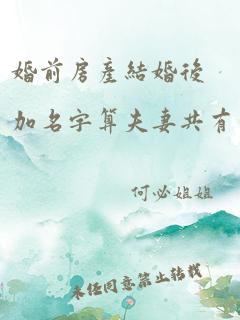 婚前房產結婚後
加名字算夫妻共有
何必姐姐
未经同意禁止转载